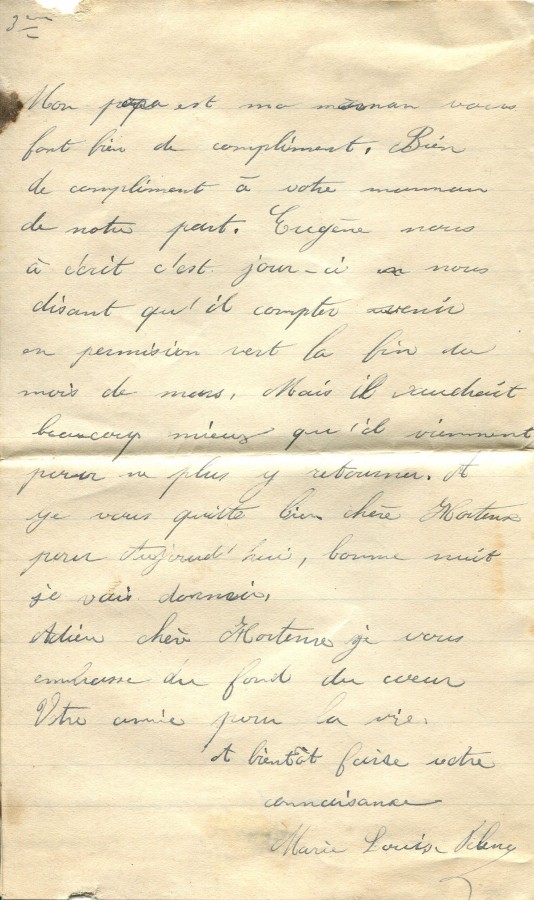 3
Mon papa est ma maman vous
font bien de compliment. Bien
de compliment à votre maman
de notre part. Eugène nous
à écrit c'est jour-ci nous
disant qu'il compter venir
en permision vert la fin du
mois de mars. Mais il vaudrait
beaucoup mieux qu'il viennent
pour ne plus y retourner. A
je vous quitte bien chère Hortense
pour Aujourd'hui, bonne nuit
je vais dormir.
Adieu chère Hortense je vous
embrasse du fond du cœur
Votre amie pour la vie.
A bientôt faire votre
connaisanse
Marie Louise